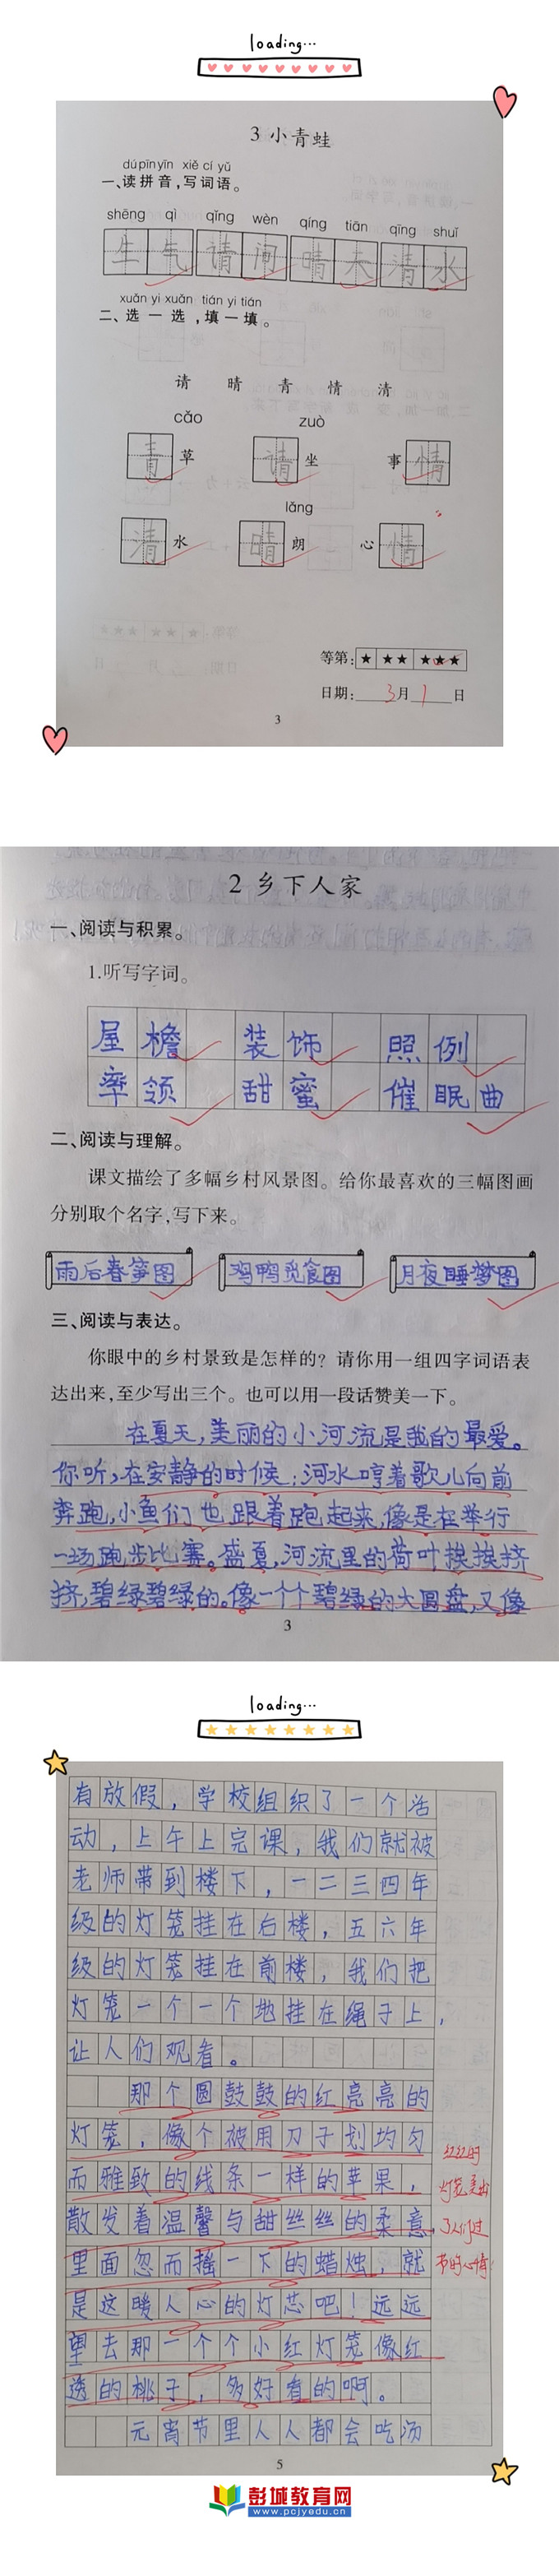 loading...
3 小青蛙
dú pīn yīn xiě cí yǔ
一、读拼音,写词语。
shēng qì qǐng wèn qíng tiān qīng shuǐ
生气 请问 晴天 清水
xuǎn yi xuǎn tián yi tián
二、选一选,填一填。
请 晴 青 情 清
cǎo zuò
青草 请坐 事情
lǎng
清水 晴朗 心情
等第: ★ ★★ ★★★
日期: 3月1日
3
2 乡下人家
一、阅读与积累。
1.听写字词。
屋檐 装饰 照例
率领 甜蜜 催眠曲
二、阅读与理解。
课文描绘了多幅乡村风景图。给你最喜欢的三幅图画
分别取个名字,写下来。
雨后春笋图 鸡鸭觅食图 月夜睡梦图
三、阅读与表达。
你眼中的乡村景致是怎样的? 请你用一组四字词语表
达出来,至少写出三个。也可以用一段话赞美一下。
在夏天,美丽的小河流是我的最爱。
你听,在安静的时候,河水哼着歌儿向前
奔跑,小鱼们也跟着跑起来,像是在举行
一场跑步比赛。盛夏,河流里的荷叶挨挨挤
挤,碧绿碧绿的。像一个个碧绿的大圆盘,又像
3
loading...
有放假,学校组织了一个活
动,上午上完课,我们就被
老师带到楼下,一二三四年
级的灯笼挂在后楼,五六年
级的灯笼挂在前楼,我们把
灯笼一个一个地挂在绳子上,
让人们观看。
那个圆鼓鼓的红亮亮的
灯笼,像个被用刀子划均匀
而雅致的线条一样的苹果,
散发着温馨与甜丝丝的柔意,
里面忽而摇一下的蜡烛,就
是这暖人心的灯芯吧!远远
望去那一个个小红灯笼像红
透的桃子,多好看的啊。
元宵节里人人都会吃汤
红红的
灯笼美丽
了人们过
节的心情!
5
彭城教育网
www.pcjyedu.cn